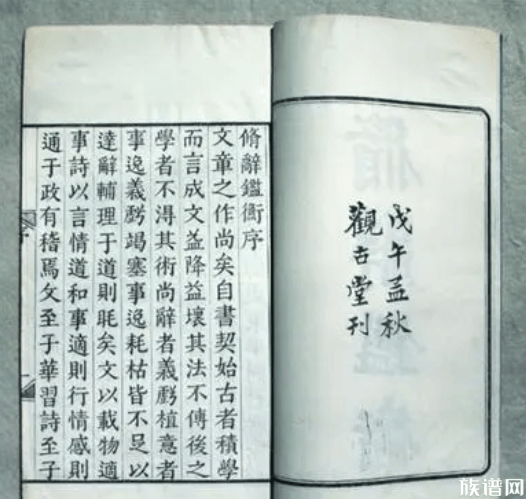 戊午孟秋
觀古堂刊
脩辭鑑衡序
文章之作尚矣自書契始古者積學
而言成文益降益壞其法不傳後之
學者不淂其術尚辭者義虧植意者
事逸義虧竭塞事逸耗枯皆不足以
達辭輔理于道則眊矣文以載物適
事詩以言情道和事適則行情感則
通于政有稽焉文至于華習詩至于
族谱网